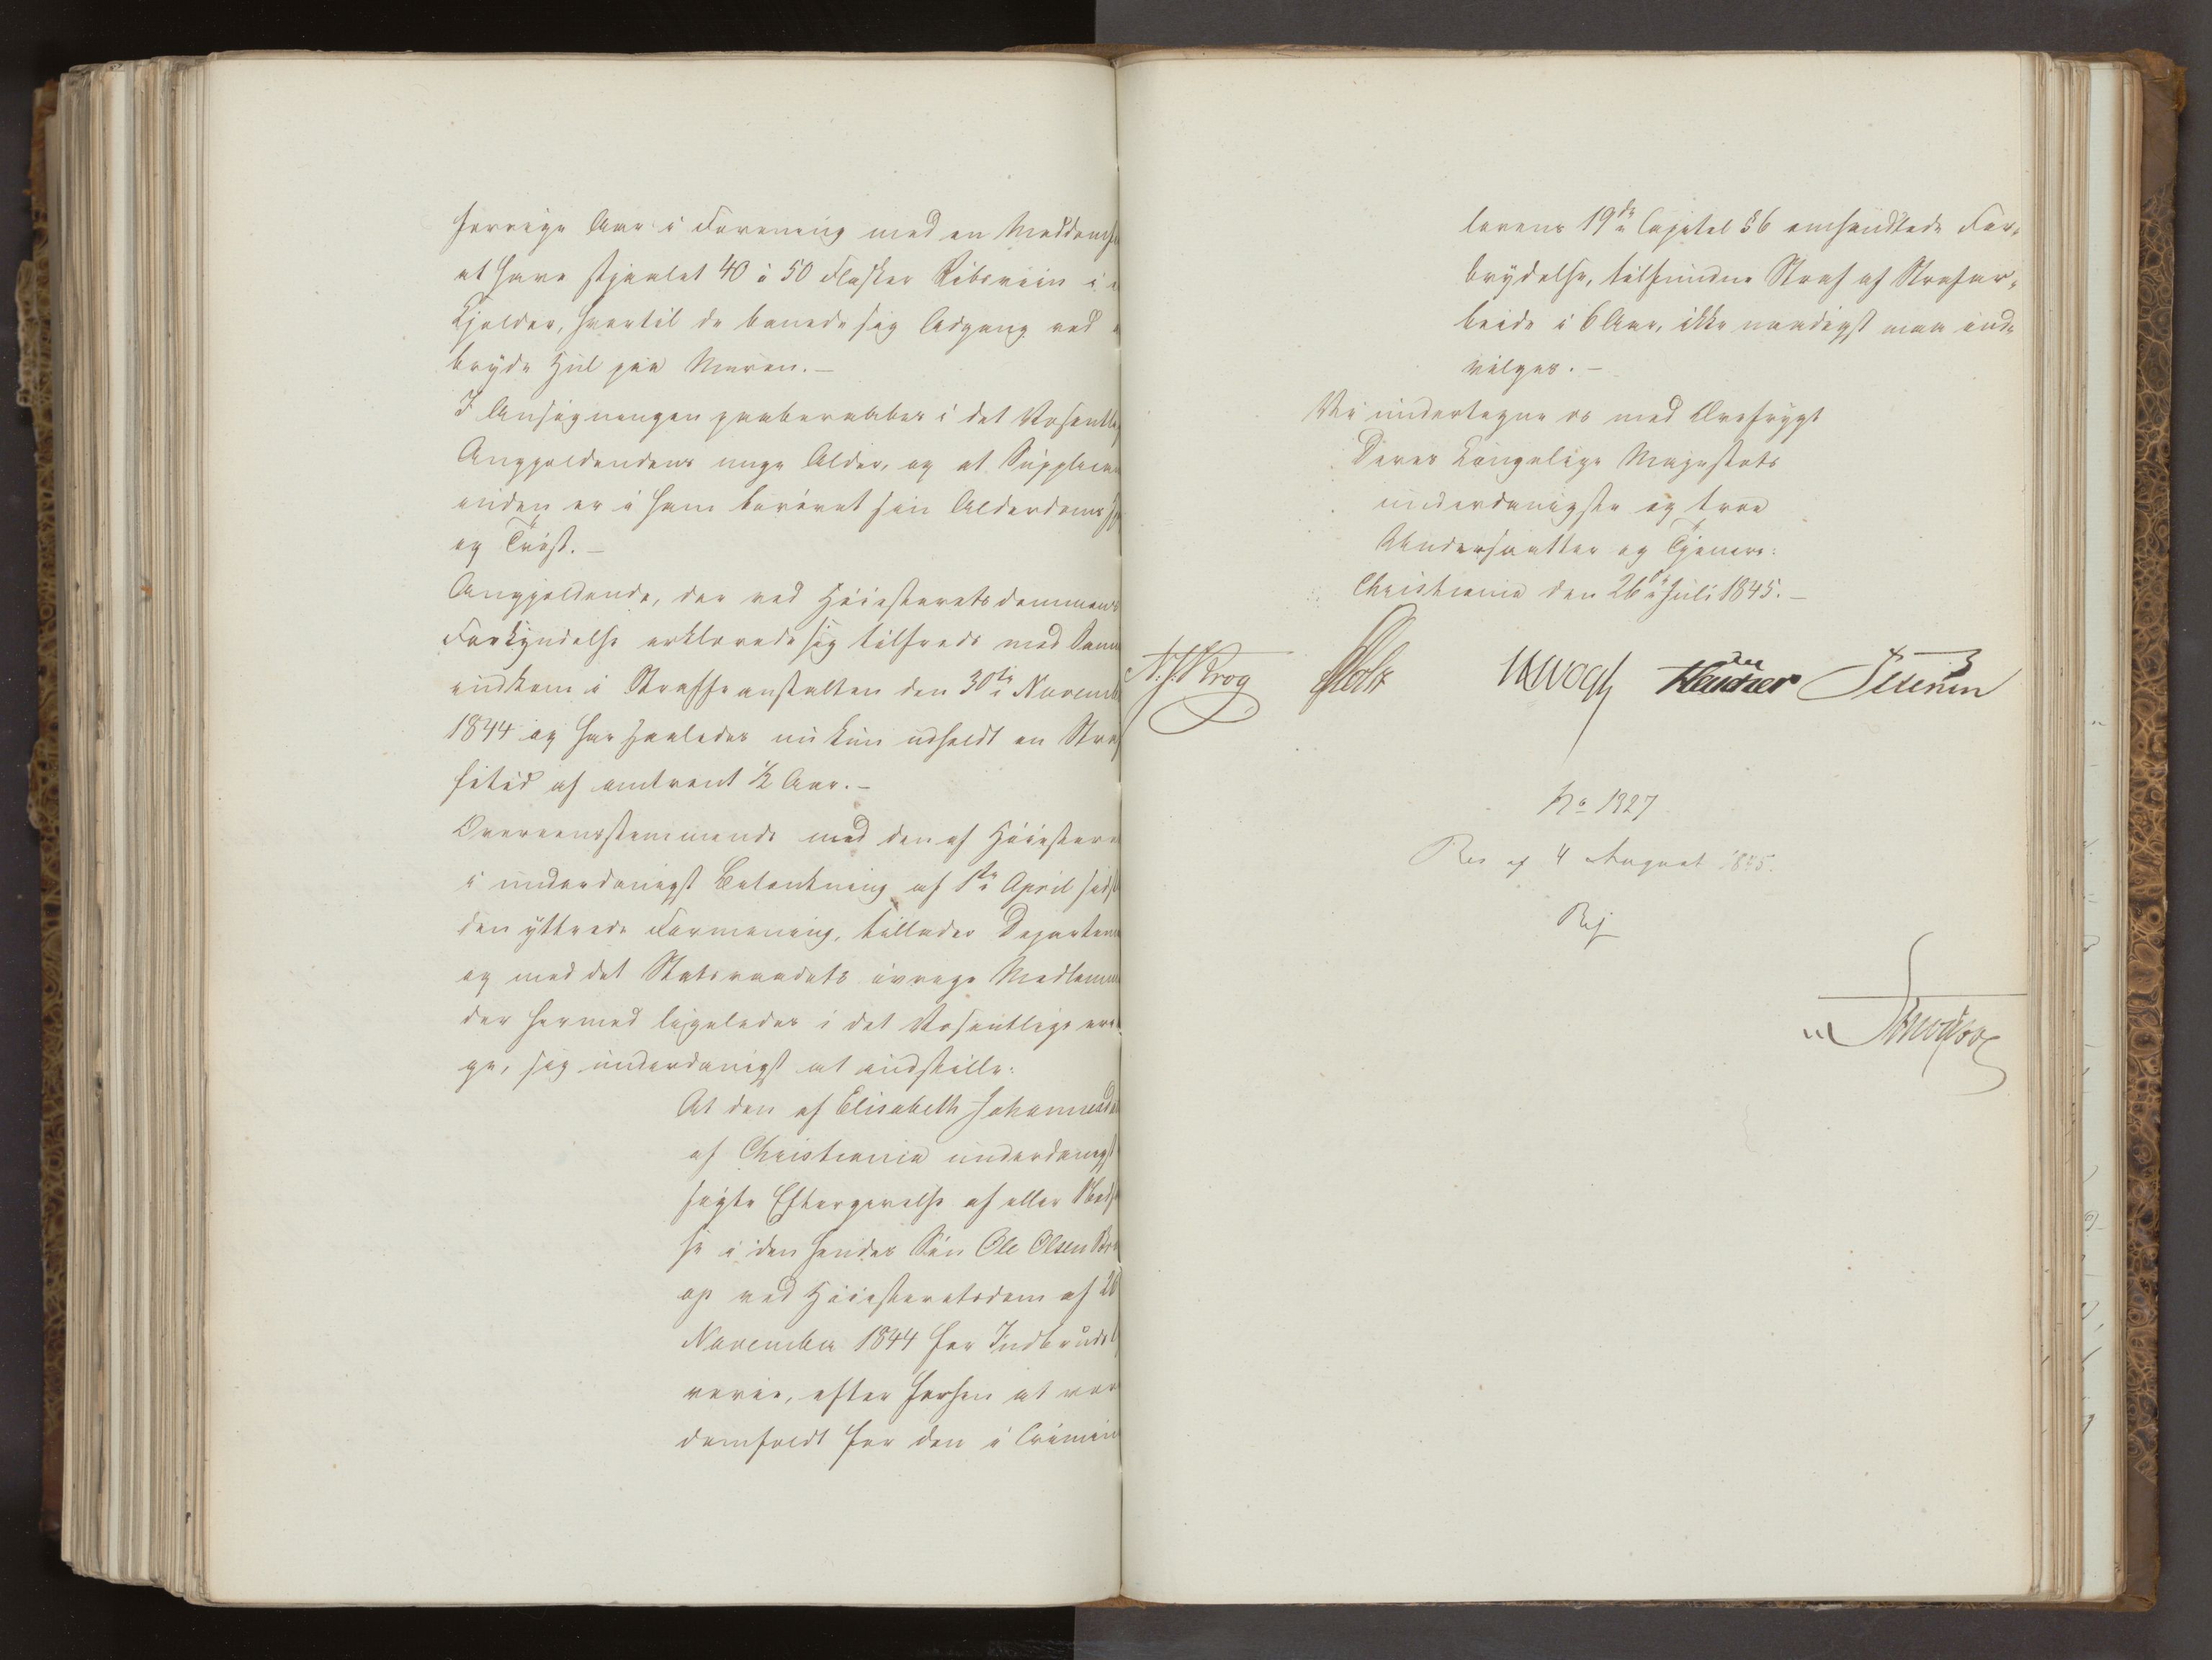 forrige Aar i Forening med en Meddomf
at have stjaalet 40 à 50 Flasker Ribsviin i e
Kjelder, hvortil de banede sig Adgang ved a
bryde Hul paa Muren. –
I Ansøgningen paaberaabes i det Væsentlig
Anggjeldendens unge Alder, og at Supplican
inden er i ham berøvet sin Alderdoms
og Trøst. –
Anggjeldende, der ved Høiesteretsdommens
Forkyndelse erklærede sig tilfreds med Samm
indkom i Straffeanstalten den 30te Novemb
1844 og har saaledes nu kun udholdt en Straf
fetid af omtrent ½ Aar. –
Overeensstemmende med den af Høiestere
i underdanigst Betænkning af 1ste April sids
den yttrede Formening, tillader Departem
og med det Statsraadets øvrige Medlemm
der hermed ligeledes i det Væsentlige ere
ge, sig underdanigst at indstille:
At den af Elisabeth Johannesda
af Christiania underdanigst
søgte Eftergivelse af eller Neds
se i den hendes Søn Ole Olsen
op ved Høiesteretsdom af 26
November 1844 for Indbruds
verie, efter forhen at vær
domfældt for den i Crimin
lovens 19de Capitel § 6 omhandlede For-
brydelse, tilfundne Straf af Strafar-
beide i 6 Aar, ikke naadigst maa ind-
vilges. –
Vi undertegne os med Ærefrygt
Deres Kongelige Majestæts
underdanigste og troe
Undersaatter og Tjenere:
Christiania den 26de Juli 1845. –
N. J. Krog Holst Vogt Petersen
No 1327
Res af 4 August 1845.
Rej